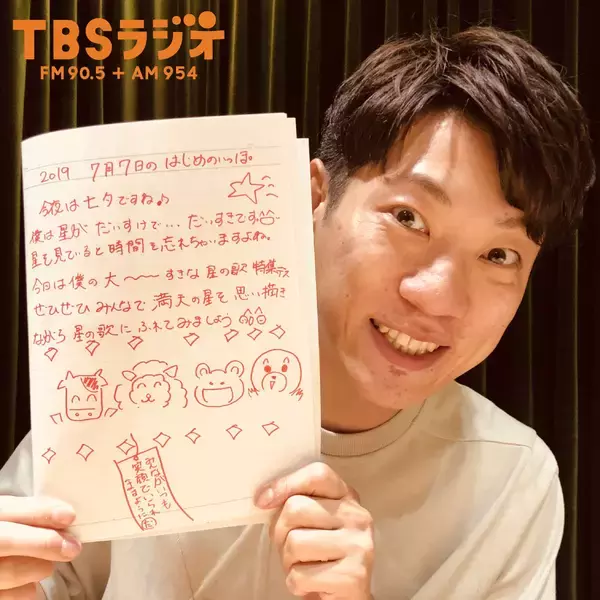 TBSラジオ
FM 90.5 + AM 954
2019 7月7日の はじめのいっぽ。
今夜は七夕ですね♪
僕は星が だいすけで… だいすきです
星を見ていると時間を忘れちゃいますよね。
今日は僕の大〜〜すきな 星の歌 特集デス
ぜひぜひ みんなで 満天の星を 思い描き
ながら 星の歌に ふれてみましょう
みながいつも
笑顔でいられ
ますように